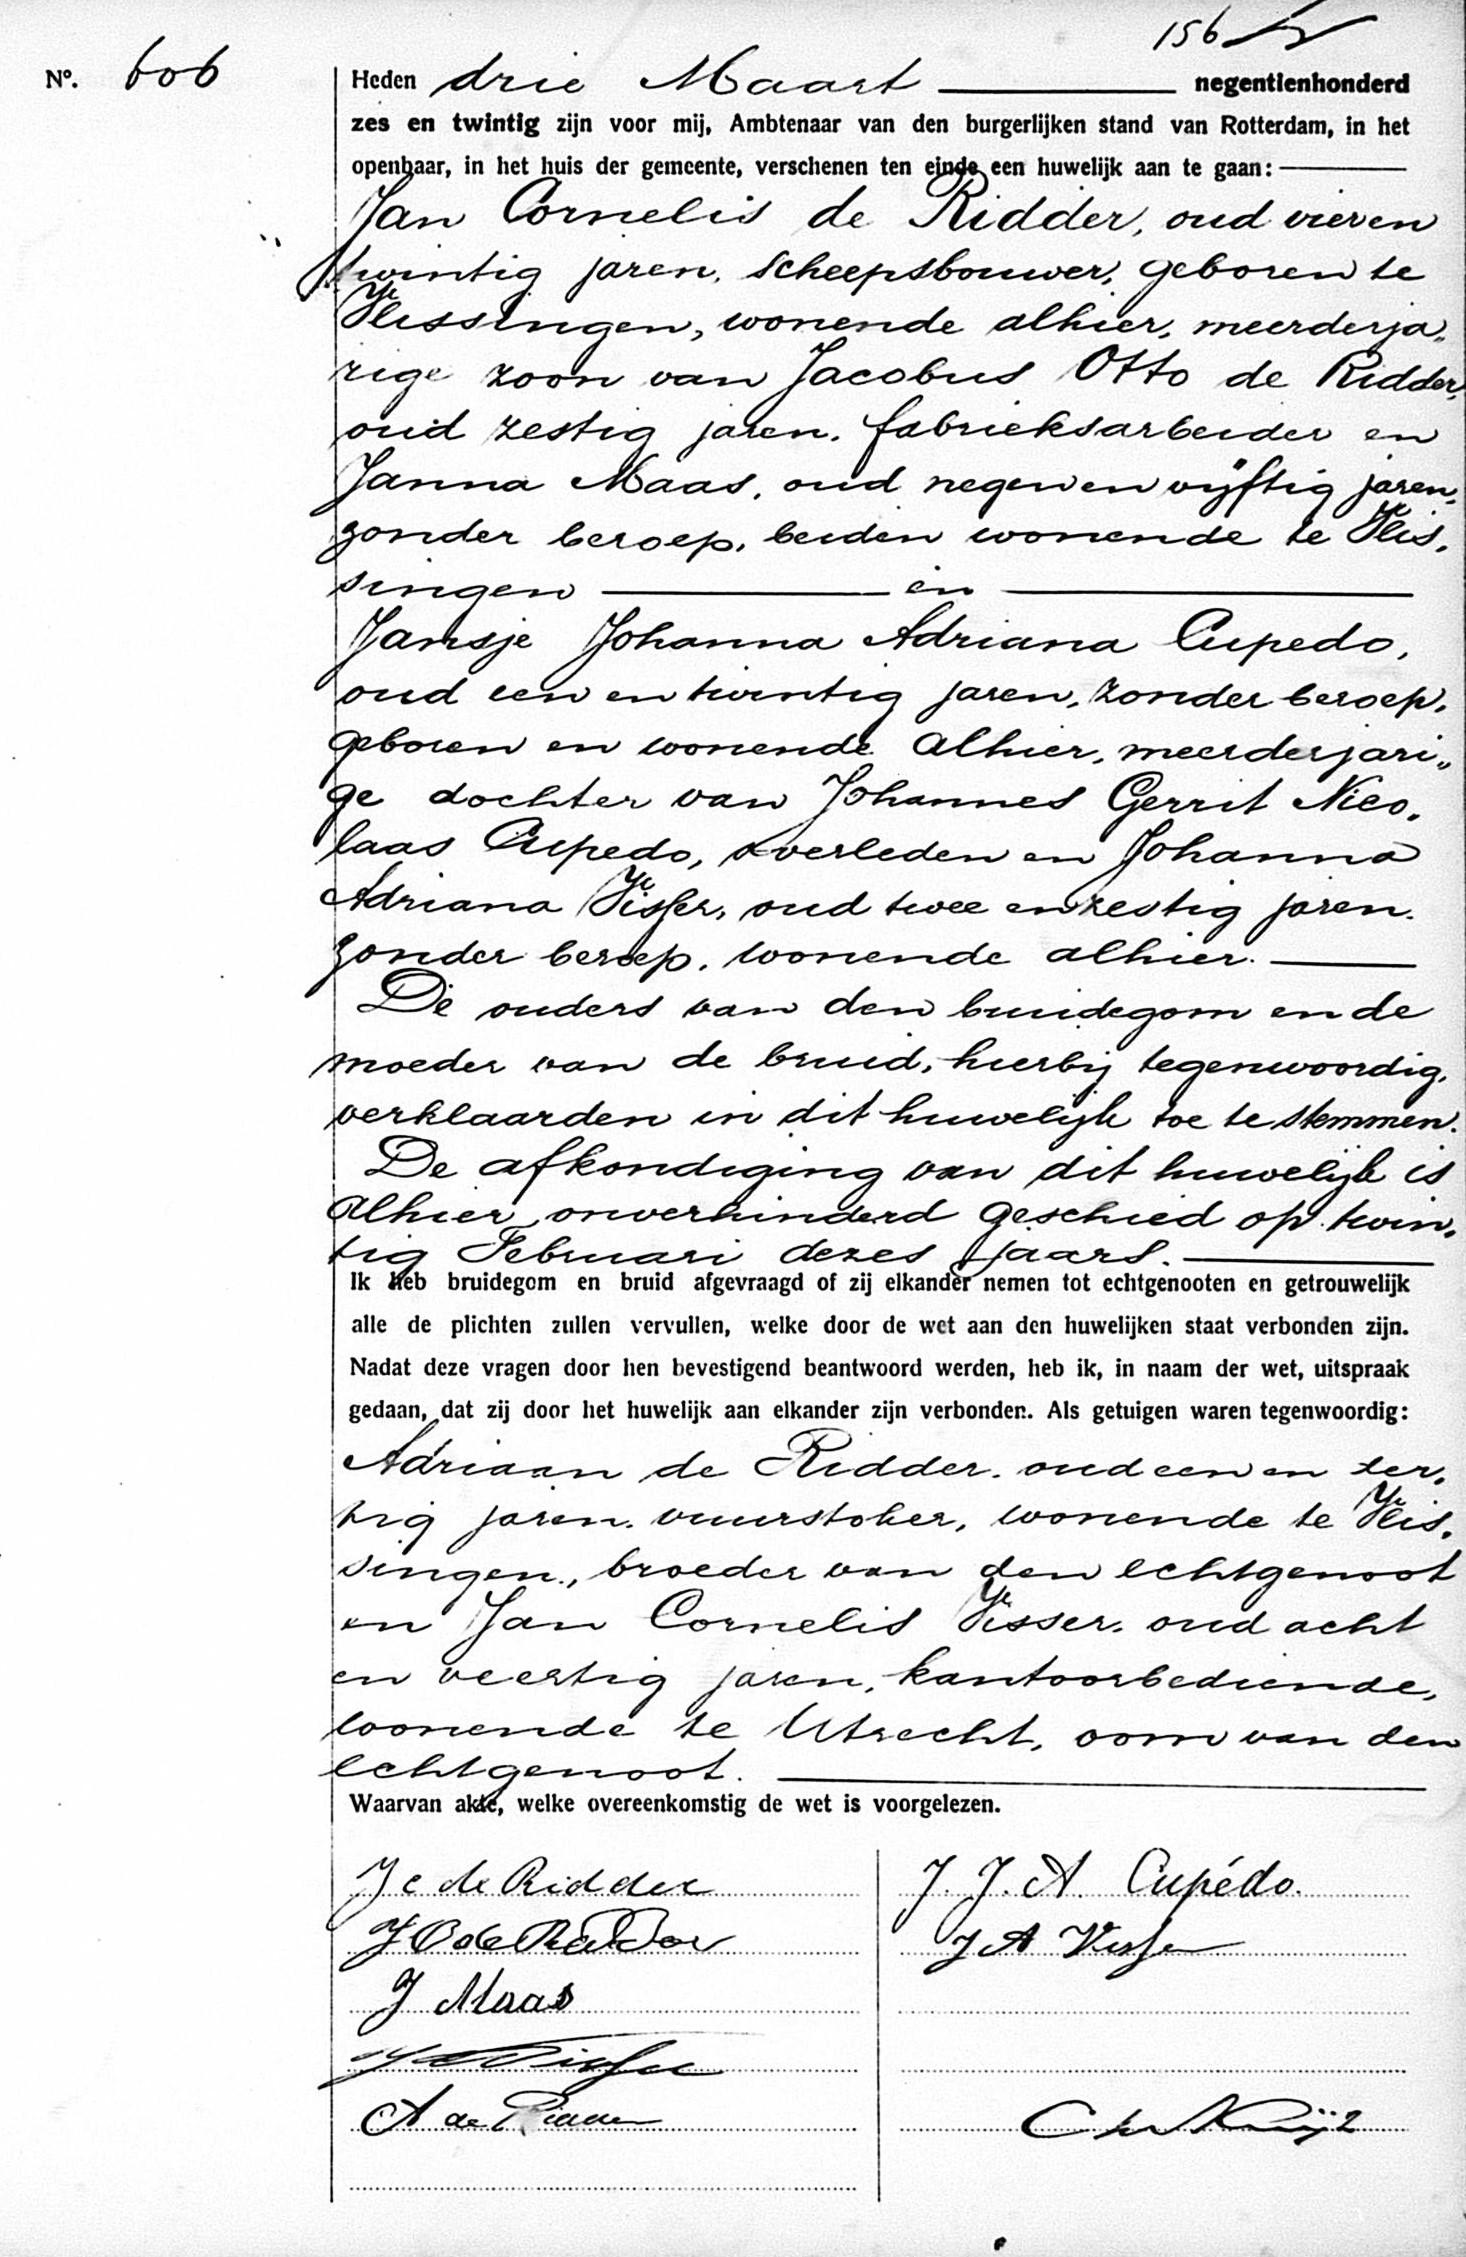 156
Nº. 606
Heden drie Maart negentienhonderd
zes en twintig zijn voor mij, Ambtenaar van den burgerlijken stand van Rotterdam, in het
openbaar, in het huis der gemeente, verschenen ten einde een huwelijk aan te gaan:
Jan Cornelis de Ridder, oud vier en
twintig jaren, scheepsbouwer, geboren te
Vlissingen, wonende alhier, meerderja„
rige zoon van Jacobus Otto de Ridder,
oud zestig jaren, fabrieksarbeider en
Janna Maas, oud negen en vijftig jaren,
zonder beroep, beiden wonende te Vlis„
singen en
Jansje Johanna Adriana Cupedo,
oud een en twintig jaren, zonder beroep,
geboren en wonende alhier, meerderjari„
ge dochter van Johannes Gerrit Nico„
laas Cupedo, overleden en Johanna
Adriana Visser, oud twee en zestig jaren,
zonder beroep, wonende alhier.
De ouders van den bruidegom en de
moeder van de bruid, hierbij tegenwoordig,
verklaarden in dit huwelijk toe te stemmen.
De afkondiging van dit huwelijk is
alhier onverhinderd geschied op twin„
tig Februari dezes jaars.
Ik heb bruidegom en bruid afgevraagd of zij elkander nemen tot echtgenooten en getrouwelijk
alle de plichten zullen vervullen, welke door de wet aan den huwelijken staat verbonden zijn.
Nadat deze vragen door hen bevestigend beantwoord werden, heb ik, in naam der wet, uitspraak
gedaan, dat zij door het huwelijk aan elkander zijn verbonden. Als getuigen waren tegenwoordig:
Adriaan de Ridder, oud een en der„
tig jaren, vuurstoker, wonende te Vlis„
singen, broeder van den echtgenoot
en Jan Cornelis Visser, oud acht
en veertig jaren, kantoorbediende,
wonende te Utrecht, oom van den
echtgenoot.
Waarvan akte, welke overeenkomstig de wet is voorgelezen.
J C de Ridder J. J. A. Cupédo.
J O de Ridder J A Visser
J Maas
Visser
A de Ridder